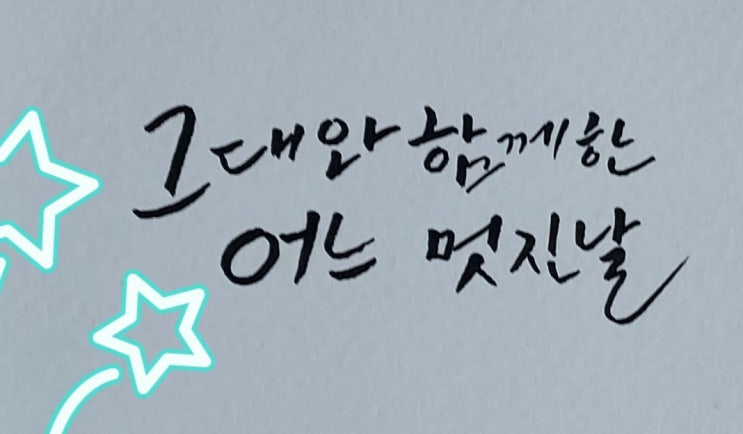 그대와 함께한
어느 멋진날